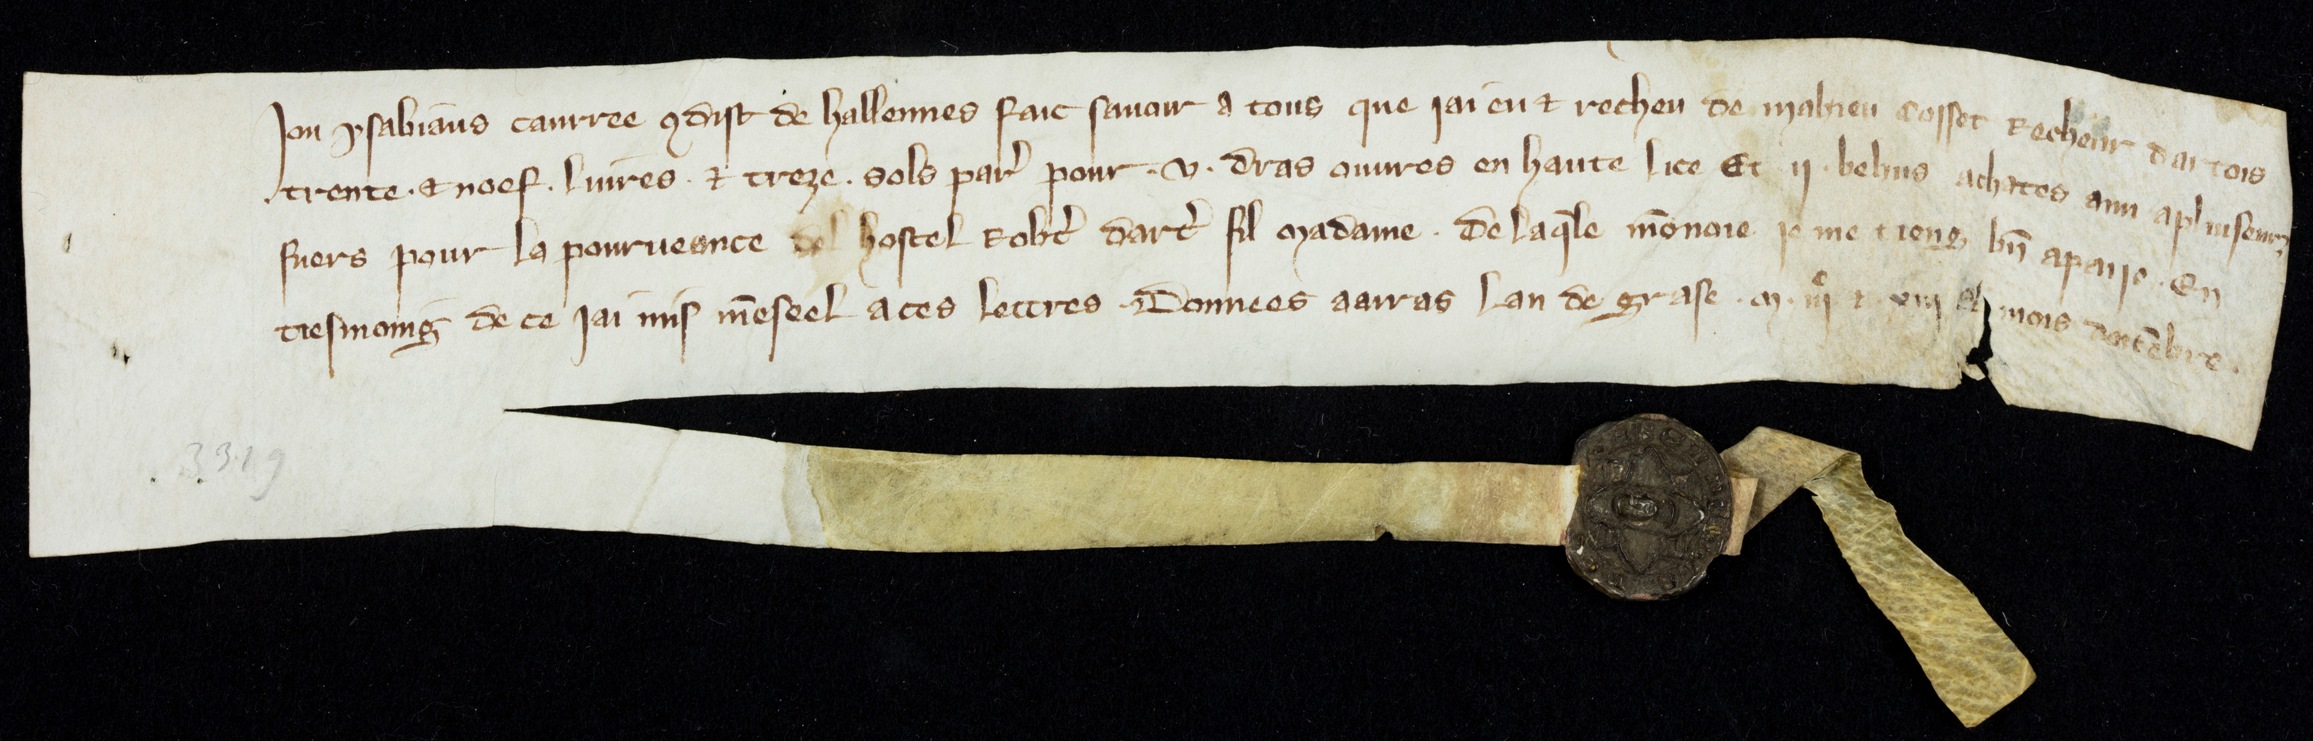 Jou ysabiaus caurree ꝯdist de hallennes faic sauoir a tous que iai eu ⁊ recheu de mahieu cosset recheur dartois
trente · ⁊ noef · liures · ⁊ treze · sols par̉ pour · v · dras ouures en haute lice Et ij · behus achates a mi a pluiseurs
fuers pour la pourueance del hostel Robt̉ dart̉ fil madame · de laq̄le mōnoie ie me tieng bn̄ a paije · En
tiesmoing de ce jai mis mēseel a ces lettres · Donnees a arras lan de grase · m · iijͨ ⁊ xiij el mois doitēbre ·
3319